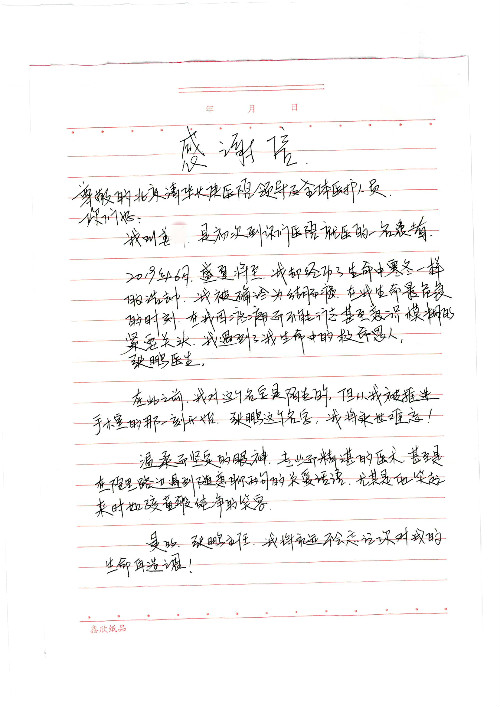 年 月 日
感谢信
尊敬的北京清华长庚医院领导及全体医护人员
你们好:
我叫 , 是初次到你们医院就医的一名患者
2019年6月, 盛夏将至, 我却经历了生命中寒冬一样
的 , 我被确诊为 , 在我生命最危急
的时刻, 在我因 而不能 甚至 模糊的
紧要关头, 我遇到了我生命中的救命恩人,
张鹏医生。
在此之前, 我对这个名字是陌生的, 但从我被推进
手术室的那一刻开始, 张鹏这个名字, 我将永世难忘!
温柔而坚定的眼神, 专业而精湛的医术, 甚至是
在 路边遇到 的关爱话语, 尤其是他笑起
来时如孩童般纯净的笑容
是的, 张鹏主任, 我将永远不会忘记次对我的
生命再造 !
鑫欣纸品